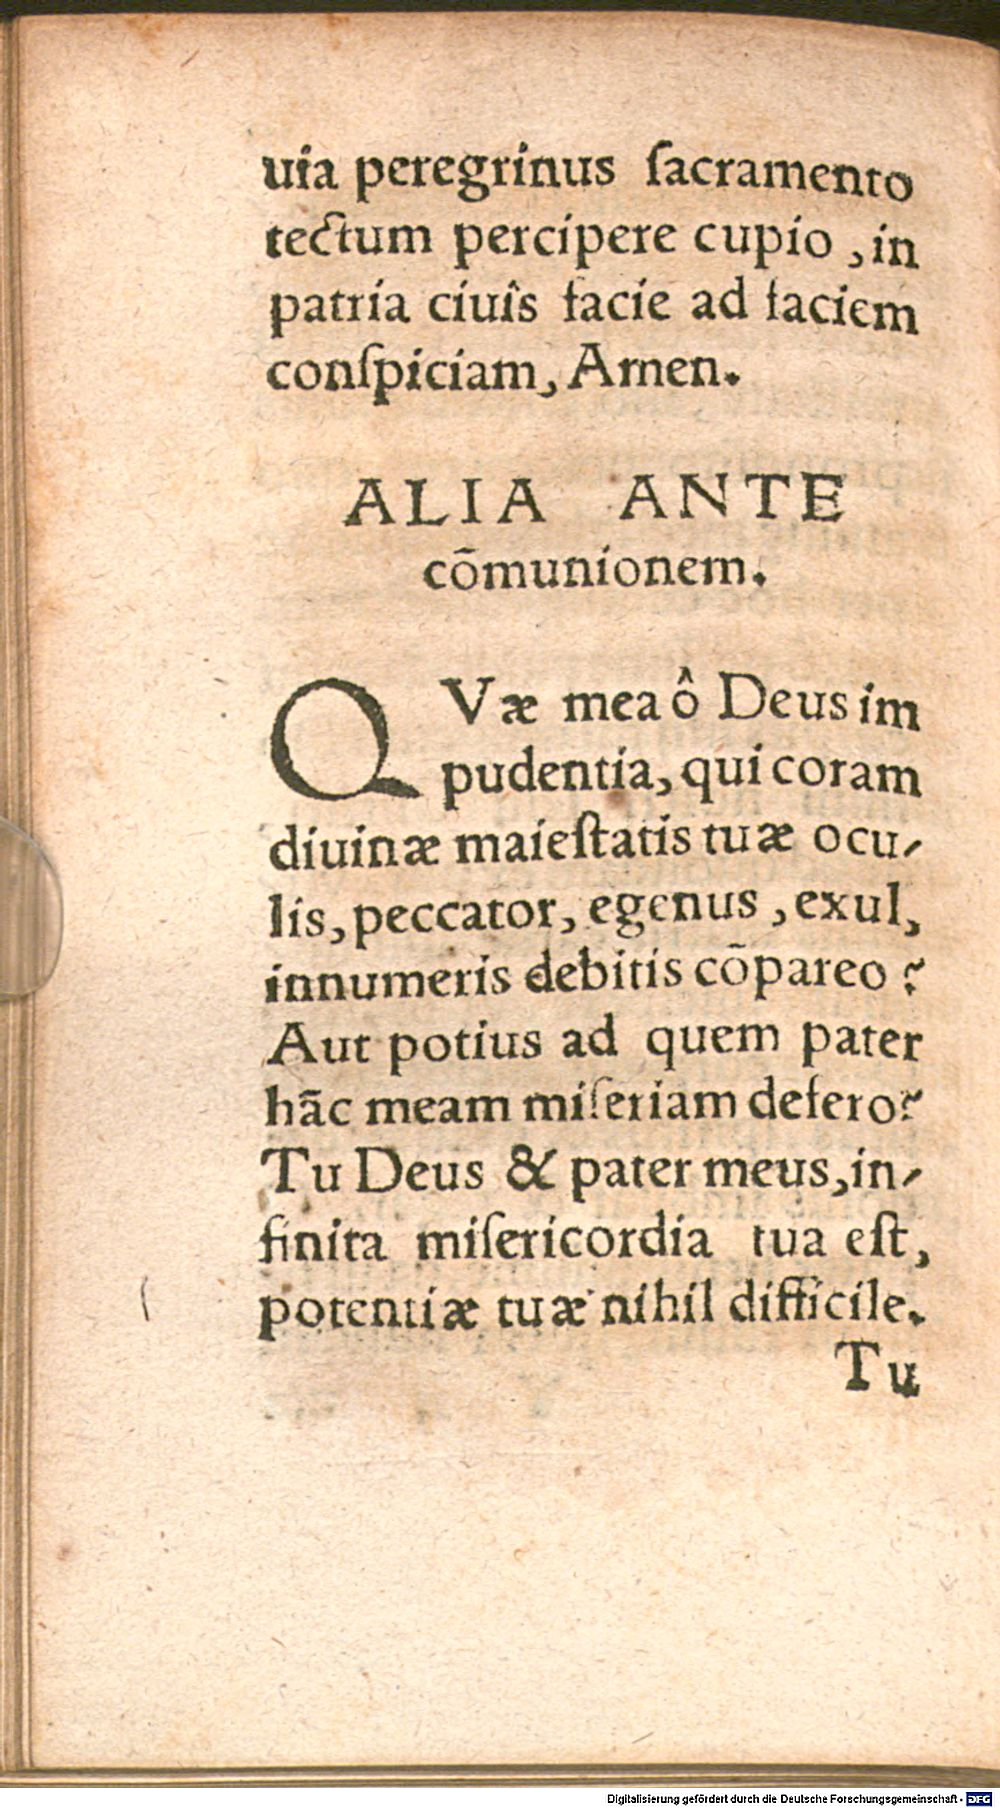 uia peregrinus ſacramento
tectum percipere cupio, in
patria ciuîs facie ad faciem
conſpiciam, Amen.
ALIA ANTE
cōmunionem.
QVæ mea ô Deus im
pudentia, qui coram
diuinæ maieſtatis tuæ ocu-
lis, peccator, egenus, exul,
innumeris debitis cōpareo?
Aut potius ad quem pater
hāc meam miſeriam defero?
Tu Deus & pater meus, in-
finita miſericordia tua eſt,
potentiæ tuæ nihil difficile.
Tu
Digitalisierung gefördert durch die Deutsche Forschungsgemeinschaft - DFG